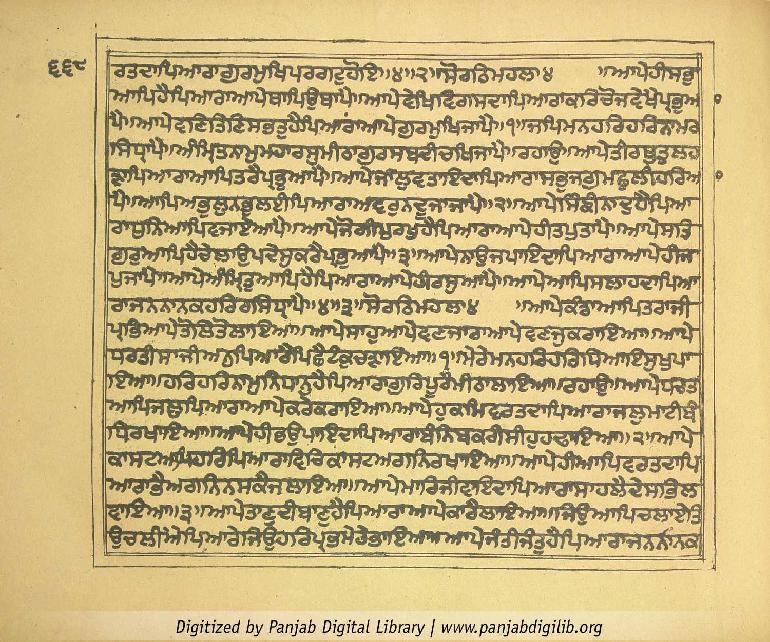 ੬੬੮
ਰਤਦਾਪਿਆਰਾਗੁਰਮੁਖਿਪਰਗਟੁਹੋਇ॥੪॥੨॥ਸੋਰਠਿਮਹਲਾ੪ ॥ਆਪੇਹੀਸਭੁ
ਆਪਿਹੈਪਿਆਰਾਆਪੇਥਾਪਿਉਥਾਪੈ॥ਆਪੇਵੇਖਿਵਿਗਸਦਾਪਿਆਰਾਕਰਿਚੋਜਵੇਖੈਪ੍ਰਭੁਆ
ਪੈ॥ਆਪੇਵਣਿਤਿਣਿਸਭਤੁਹੈਪਿਆਰਾਆਪੇਗੁਰਮੁਖਿਜਾਪੈ॥੧॥ਜਪਿਮਨਹਰਿਹਰਿਨਾਮਰ
ਸਿਧ੍ਰਾਪੈ॥ਅੰਮ੍ਰਿਤਨਾਮੁਮਹਾਰਸੁਮੀਠਾਗੁਰਸਬਦੀਚਖਿਜਾਪੈ॥ਰਹਾਉ॥ਆਪੇਤੀਰਥੁਤੁਲਹ
ੜਾਪਿਆਰਾਆਪਿਤਰੈਪ੍ਰਭੁਆਪੈ॥ਆਪੇਜਾਲੁਵਤਾਇਦਾਪਿਆਰਾਸਭੁਜਗੁਮਛੁਲੀਹਰਿਆ
ਪੈ॥ਆਪਿਅਭੁਲੁਨਭੁਲਈਪਿਆਰਾਅਵਰੁਨਦੂਜਾਜਾਪੈ॥੨॥ਆਪੇਸਿੰਙੀਨਾਦੁਹੈਪਿਆ
ਰਾਧੁਨਿਆਪਿਵਜਾਏਆਪੈ॥ਆਪੇਜੋਗੀਪੁਰਖੁਹੈਪਿਆਰਾਆਪੇਹੀਤਪੁਤਾਪੈ॥ਆਪੇਸਤਿ
ਗੁਰੁਆਪਿਹੈਚੇਲਾਉਪਦੇਸੁਕਰੈਪ੍ਰਭੁਆਪੈ॥੩॥ਆਪੇਨਾਉਜਪਾਇਦਾਪਿਆਰਾਆਪੇਹੀਜ
ਪੁਜਾਪੈ॥ਆਪੇਅੰਮ੍ਰਿਤੁਆਪਿਹੈਪਿਆਰਾਆਪੇਹੀਰਸੁਆਪੈ॥ਆਪੇਆਪਿਸਲਾਹਦਾਪਿਆ
ਰਾਜਨਨਾਨਕਹਰਿਰਸਿਧ੍ਰਾਪੈ॥੪॥੩॥ਸੋਰਠਿਮਹਲਾ੪ ॥ਆਪੇਕੰਡਾਆਪਿਤਰਾਜੀ
ਪ੍ਰਭਿਆਪੇਤੋਲਿਤੋਲਾਇਆ॥ਆਪੇਸਾਹੁਆਪੇਵਣਜਾਰਾਆਪੇਵਣਜੁਕਰਾਇਆ॥ਆਪੇ
ਧਰਤੀਸਾਜੀਅਨੁਪਿਆਰੈਪਿਛੈਟੰਕੁਚੜਾਇਆ॥੧॥ਮੇਰੇਮਨਹਰਿਹਰਿਧਿਆਇਸੁਖੁਪਾ
ਇਆ॥ਹਰਿਹਰਿਨਾਮੁਨਿਧਾਨੁਹੈਪਿਆਰਾਗੁਰਿਪੂਰੈਮੀਠਾਲਾਇਆ॥ਰਹਾਉ॥ਆਪੇਧਰਤੀ
ਆਪਿਜਲੁਪਿਆਰਾਆਪੇਕਰੇਕਰਾਇਆ॥ਆਪੇਹੁਕਮਿਵਰਤਦਾਪਿਆਰਾਜਲੁਮਾਟੀਬੰ
ਧਿਰਖਾਇਆ॥ਆਪੇਹੀਭਉਪਾਇਦਾਪਿਆਰਾਬੰਨਿਬਕਰੀਸੀਹੁਹਢਾਇਆ॥੨॥ਆਪੇ
ਕਾਸਟਆਪਿਹਰਿਪਿਆਰਾਵਿਚਿਕਾਸਟਅਗਨਿਰਖਾਇਆ॥ਆਪੇਹੀਆਪਿਵਰਤਦਾਪਿ
ਆਰਾਭੈਅਗਨਿਨਸਕੈਜਲਾਇਆ॥ਆਪੇਮਾਰਿਜੀਵਾਇਦਾਪਿਆਰਾਸਾਹਲੈਦੇਸਭਿਲ
ਵਾਇਆ॥੩॥ਆਪੇਤਾਣੁਦੀਬਾਣੁਹੈਪਿਆਰਾਆਪੇਕਾਰੈਲਾਇਆ॥ਜਿਉਆਪਿਚਲਾਏਤਿ
ਉਚਲੀਐਪਿਆਰੇਜਿਉਹਰਿਪ੍ਰਭਮੇਰੇਭਾਇਆ॥ਆਪੇਜੰਤੀਜੰਤੁਹੈਪਿਆਰਾਜਨਨਾਨਕ
Digitized by Panjab Digital Library | www.panjabdigilib.org